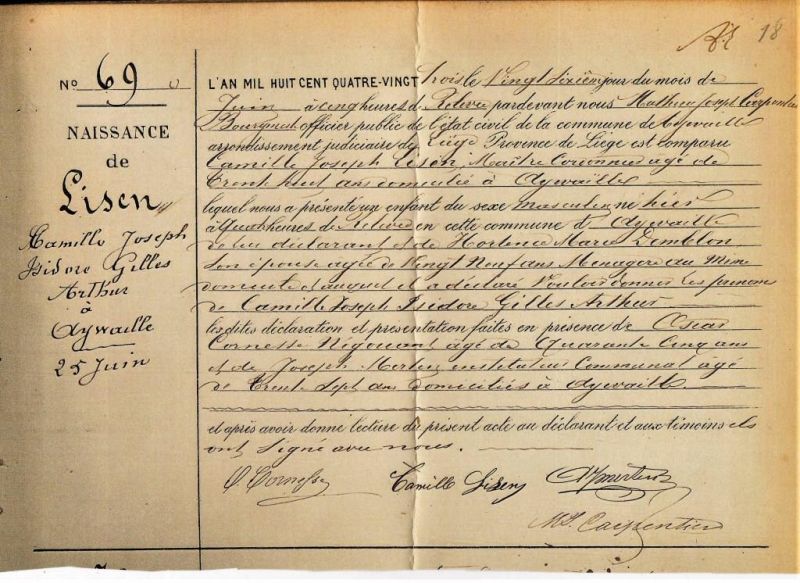 18
No 69
NAISSANCE
de
Lisen
Camille Joseph
Isidore Gilles
Arthur
à
Aywaille
25 Juin
L'AN MIL HUIT CENT QUATRE-VINGT trois le Vingt sixième jour du mois de
Juin à cinq heures de Relevée pardevant nous Mathieu Joseph Carpentier
Bourgmestre officier public de l'état civil de la commune de Aywaille
arrondissement judiciaire de Liège Province de Liège est comparu
Camille Joseph Lisen, Maître Cordonnier agé de
Trente huit ans domicilié à Aywaille
lequel nous a présenté un enfant du sexe masculin né hier
à quatre heures de Relevée en cette commune d' Aywaille
de lui déclarant et de Hortence Marie Demblon
son épouse agée de Vingt Neuf ans Menagere au Même
domicile et auquel il a déclaré Vouloir donner les prenoms
de Camille Joseph Isidore Gilles Arthur
les dites déclaration et présentation faites en présence de Oscar
Cornesse Négociant agé de Quarante Cinq ans
et de Joseph instituteur Communal âgé
de Trente Sept ans domiciliés à Aywaille
et après avoir donné lecture du présent acte au déclarant et aux témoins ils
ont Signé avec nous.
O. Cornesse Camille Lisen
M. J. Carpentier